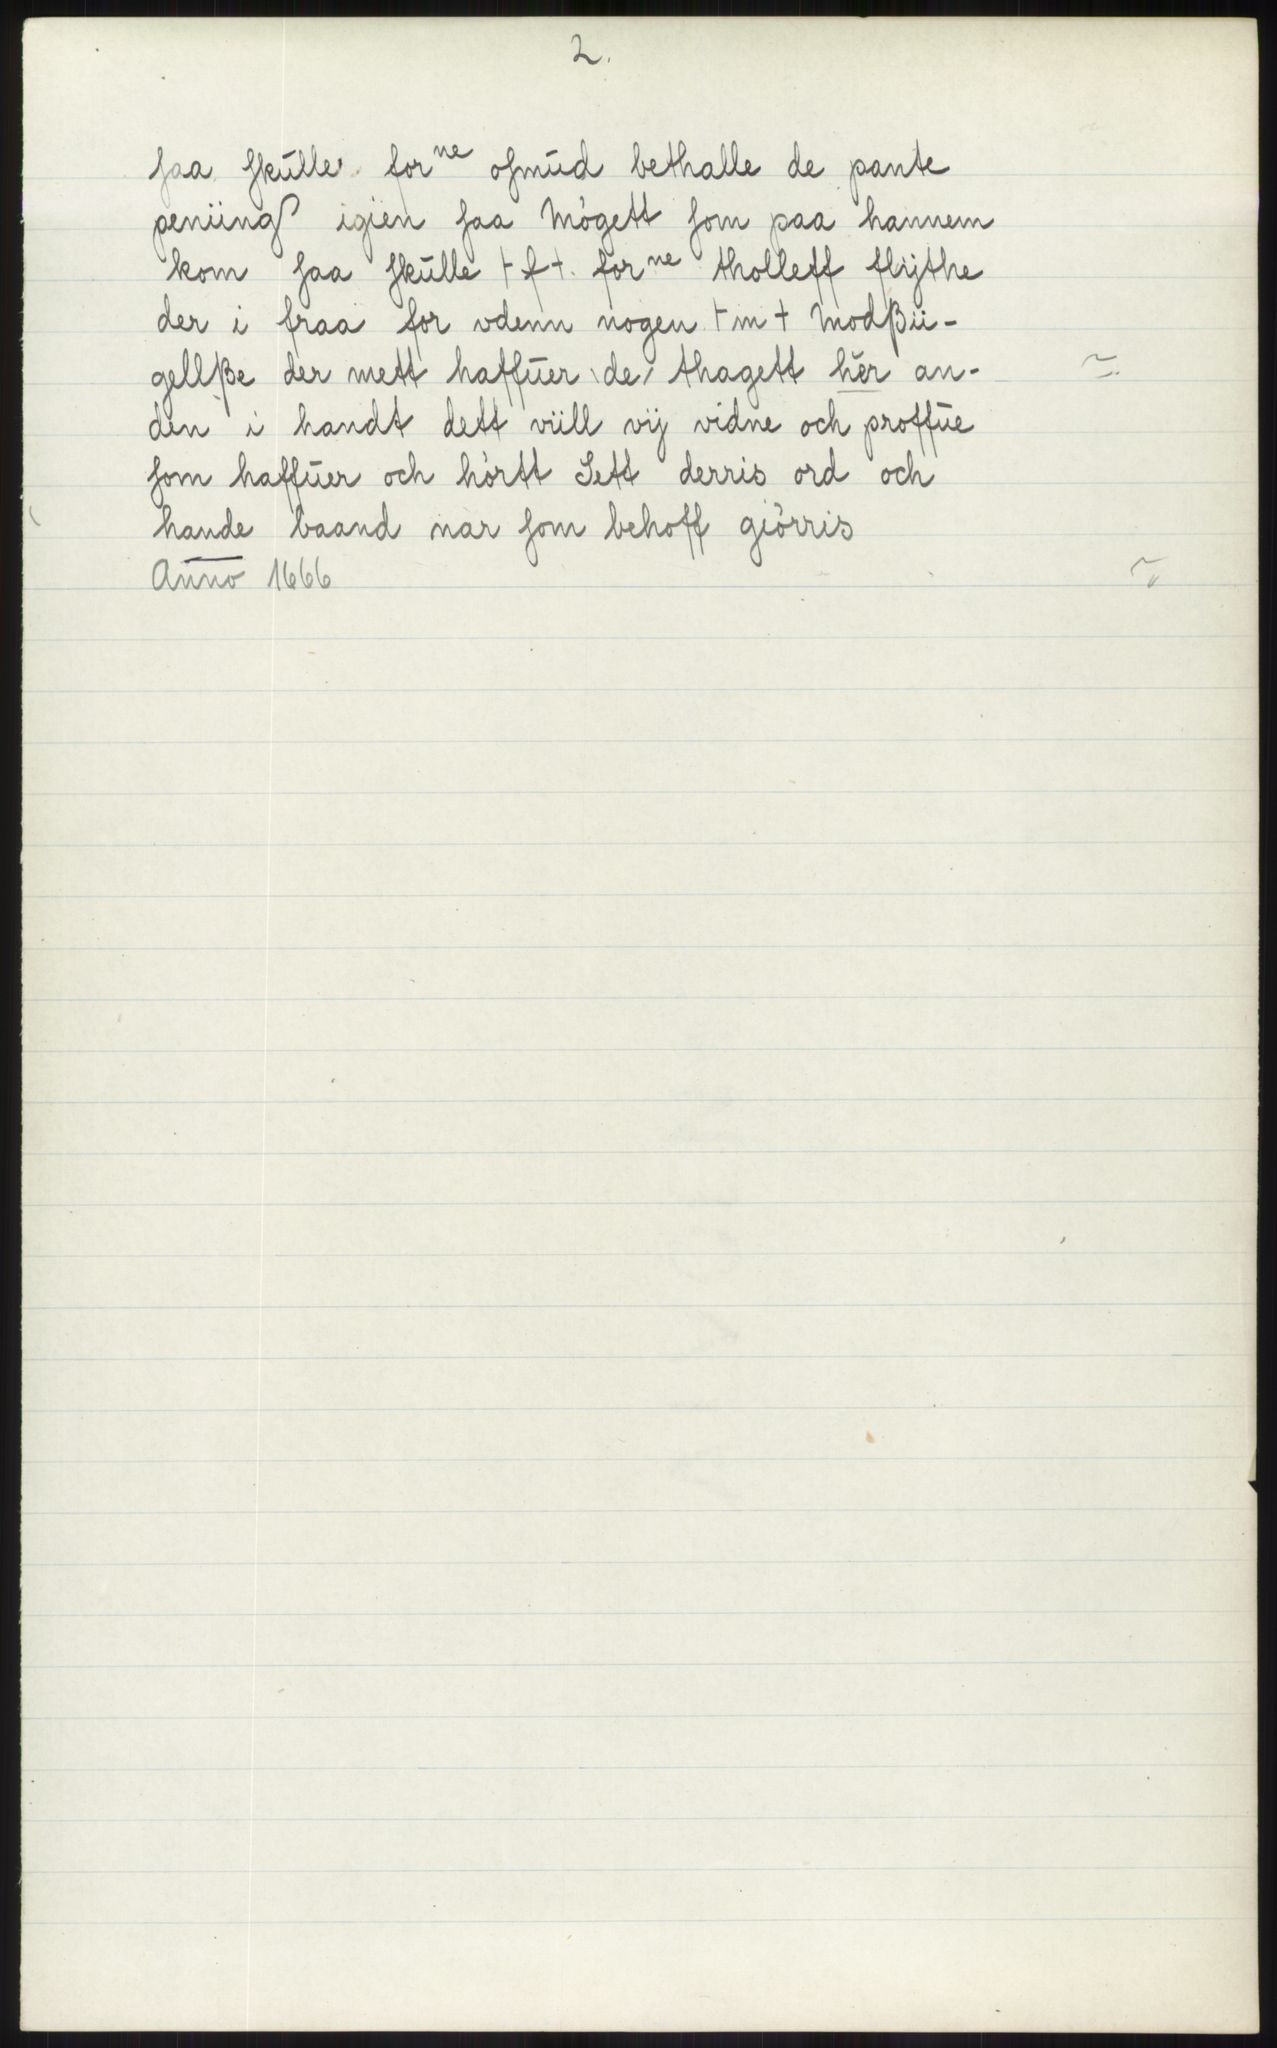 2.
saa skulle for^ne osmud bethalle de pante
peniing igien saa Mögett som paa hannem
kom saa skulle + f + for^ne tholleff flijthe
der i fraa for vdenn nogen + m + Modßii-
gellße der mett haffuer de thagett hēr an-
den i handt dett viill vij vidne och proffue
som haffuer och hörtt Sett derris ord och
hande baand nar som behoff giörris
Anno 1666